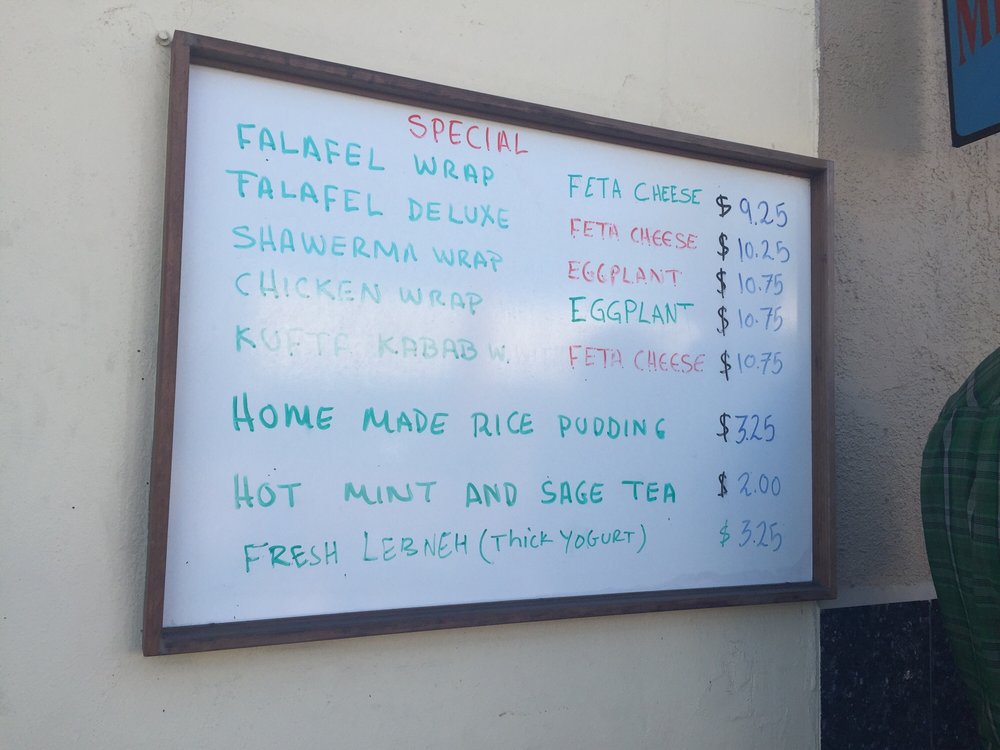 SPECIAL
FALAFEL WRAP FETA CHEESE $ 9.25
FALAFEL DELUXE FETA CHEESE $ 10.25
SHAWERMA WRAP EGGPLANT $ 10.75
CHICKEN WRAP EGGPLANT $ 10.75
KUFTE KABAB W. FETA CHEESE $ 10.75
HOME MADE RICE PUDDING $ 3.25
HOT MINT AND SAGE TEA $ 2.00
FRESH LEBNEH (Thick YOGURT) $ 3.25